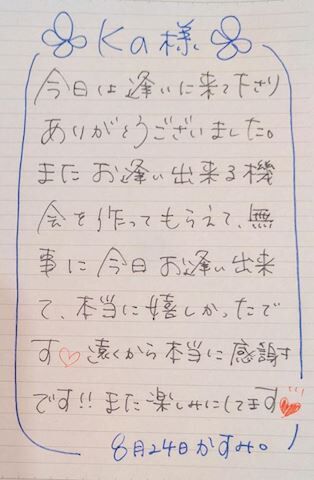 Ka様
今日は逢いに来て下さり
ありがとうございました。
またお逢い出来る機
会を作ってもらえて、無
事に今日お逢い出来
て、本当に嬉しかったで
す♡遠くから本当に感謝
です!!また楽しみにしてます♥
8月24日かすみ。